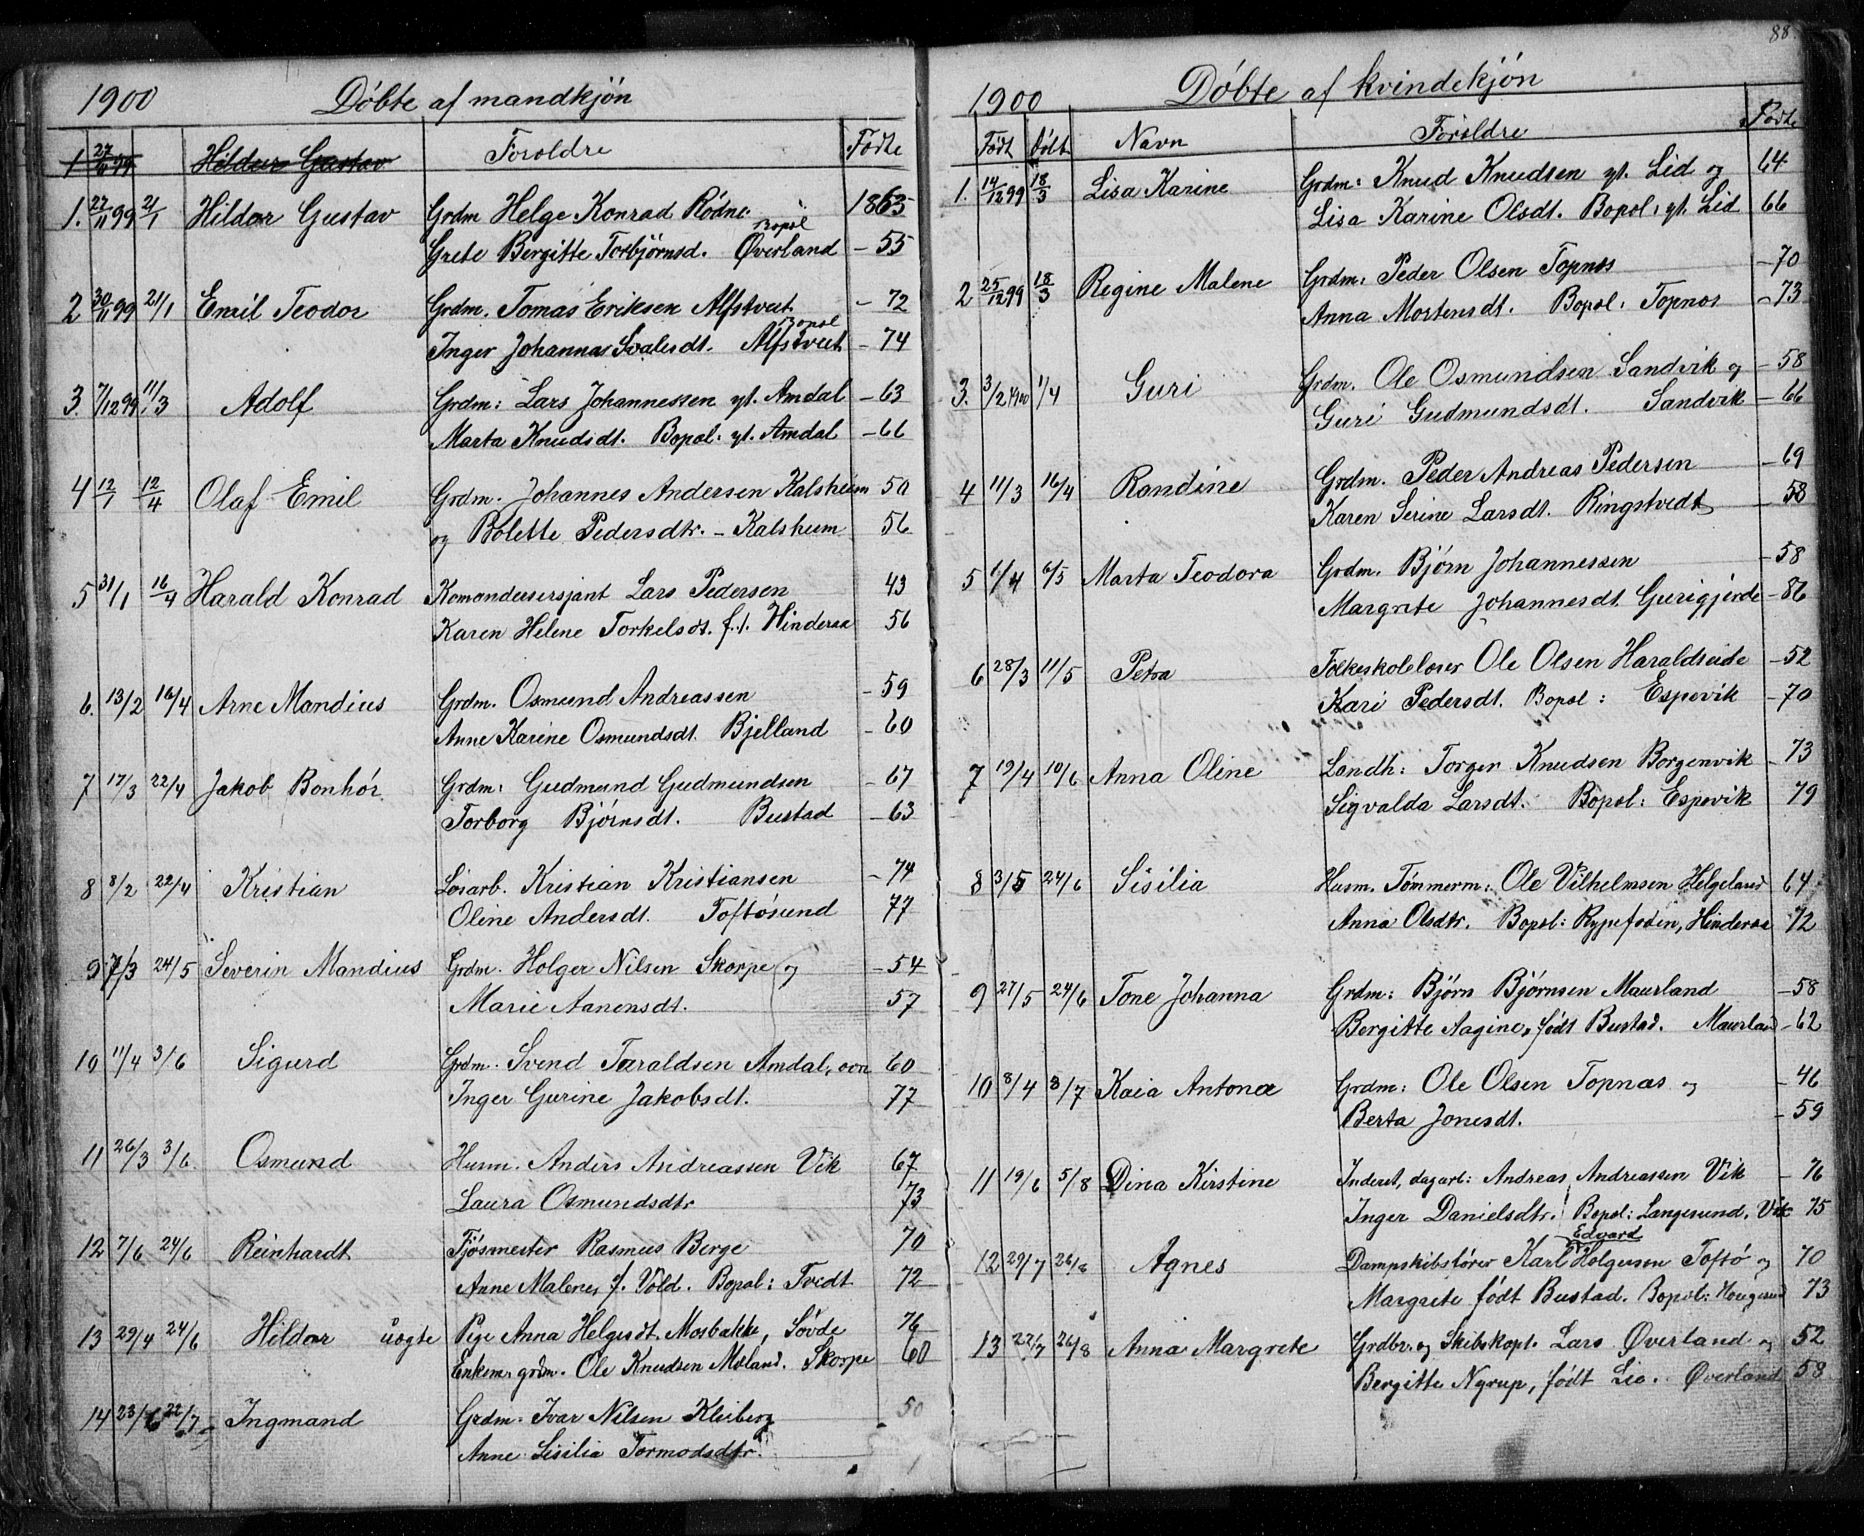 1900 Döbte af mandkjön
1 27/11 99 Hildur Gustav Foroldre Födte
1. 27/11 99 21/1 Hildar Gustav Grdm Helge Konrad Rödne. 1863
Bopöl
Grete Bergitte Torbjörnsd. Øverland – 55
2 30/11 99 21/1 Emil Teodor Grdm. Tomas Eriksen Alfstveit – 72
Bopöl
Inger Johanna Svalesdt. Alfstveit – 74
3 7/12 99 11/3 Adolf Grdm: Lars Johannessen yt. Amdal – 63
Marta Knudsdt. Bopöl: yt. Amdal – 66
4 12/1 12/4 Olaf Emil Grdm. Johannes Andersen Kalsheim 50
og Bolette Pedersdtr. – Kalsheim 56
5 31/1 16/4 Harald Konrad Komandersersjant Lars Pedersen 43
Karen Helene Torkelsdt. f. i. Hinderaa 56
6. 13/2 16/4 Arne Mandius Grdm. Osmund Andreassen – 59
Anne Karine Osmundsdt. Bjelland – 60
7 17/3 22/4 Jakob Bonhör Grdm: Gudmund Gudmundsen – 67
Torborg Björnsdt. Bustad – 63
8 8/2 22/4 Kristian Lösarb. Kristian Kristiansen – 74
Oline Andersdt. Toftösund 77
9 7/3 24/5 Severin Mandius Grdm. Holger Nilsen Skorpe og – 54
Marie Aanensdt. 57
10 11/4 3/6 Sigurd Grdm. Svend Taraldsen Amdal, ovre 60
Inger Gurine Jakobsdt. 77
11 26/3 3/6 Osmund Husm. Anders Andreassen Vik 67
Laura Osmundsdtr 73
12 7/6 24/6 Reinhardt Fjösmester Rasmus Berge 70
Anne Malene, f. Vold. Bopöl: Tvedt 72
13 29/4 24/6 Hildar uægte Pige Anna Helgesdt. Mosbakke, Sövde 76
Enkem. grdm. Ole Knudsen Mæland. Skorpe 60
14 23/6 22/7 Ingmand Grdm. Ivar Nilsen Kleiberg – 50
Anne Sisilia Tormodsdtr.
88
1900 Döbte af kvindekjön
Födt Döbt Navn Foröldre Födte
1. 14/12 99 18/3 Lisa Karine Grdm: Knud Knudsen yt. Lid og 64
Lisa Karine Olsdt. Bopöl: yt. Lid 66
2 25/12 99 18/3 Regine Malene Grdm: Peder Olsen Topnæs – 70
Anna Mortensdt. Bopöl: Topnæs – 73
3. 3/2 1900 1/4 Guri Grdm. Ole Osmundsen Sandvik og – 58
Guri Gudmundsdt. Sandvik – 66
4 11/3 16/4 Randine Grdm. Peder Andreas Pedersen – 69
Karen Serine Larsdt. Ringstvedt – 58
5 1/4 6/5 Marta Teodora Grdm. Björn Johannessen – 58
Margrete Johannesdt. Gurigjerde – 86
6 28/3 11/5 Petra Folkeskolelærer Ole Olsen Haraldseide – 52
Kari Pedersdt. Bopöl: Espevik – 70
7 19/4 10/6 Anna Oline Landh: Torger Knudsen Borgenvik – 73
Sigvalda Larsdt. Bopöl: Espevik 79
8 3/5 24/6 Sisilia Husm. Tömmerm: Ole Vilhelmsen Helgeland 64
Anna Olsdtr. Bopöl: Rypefoden, Hinderaa 72
9 27/5 24/6 Tone Johanna Grdm: Björn Björnsen Maurland – 58
Bergitte Aagine, födt Bustad. Maurland – 62
10 8/4 8/7 Kaia Antona Grdm: Ole Olsen Topnæs og – 46
Berta Jonesdt. – 59
11 19/6 5/8 Dina Kirstine Inderst, dagarb: Andreas Andreassen Vik – 76
Inger Danielsdtr. Bopöl: Langesund. Vik 75
Edvard
12 29/7 26/8 Agnes Dampskibsförer Karl Holgersen Toftö og 70
Margrete födt Bustad. Bopöl: Haugesund 73
13 22/7 26/8 Anna Margrete Grdbr. og Skibskapt. Lars Øverland og 52
Bergitte Nyrup, födt Lie. Øverland 58